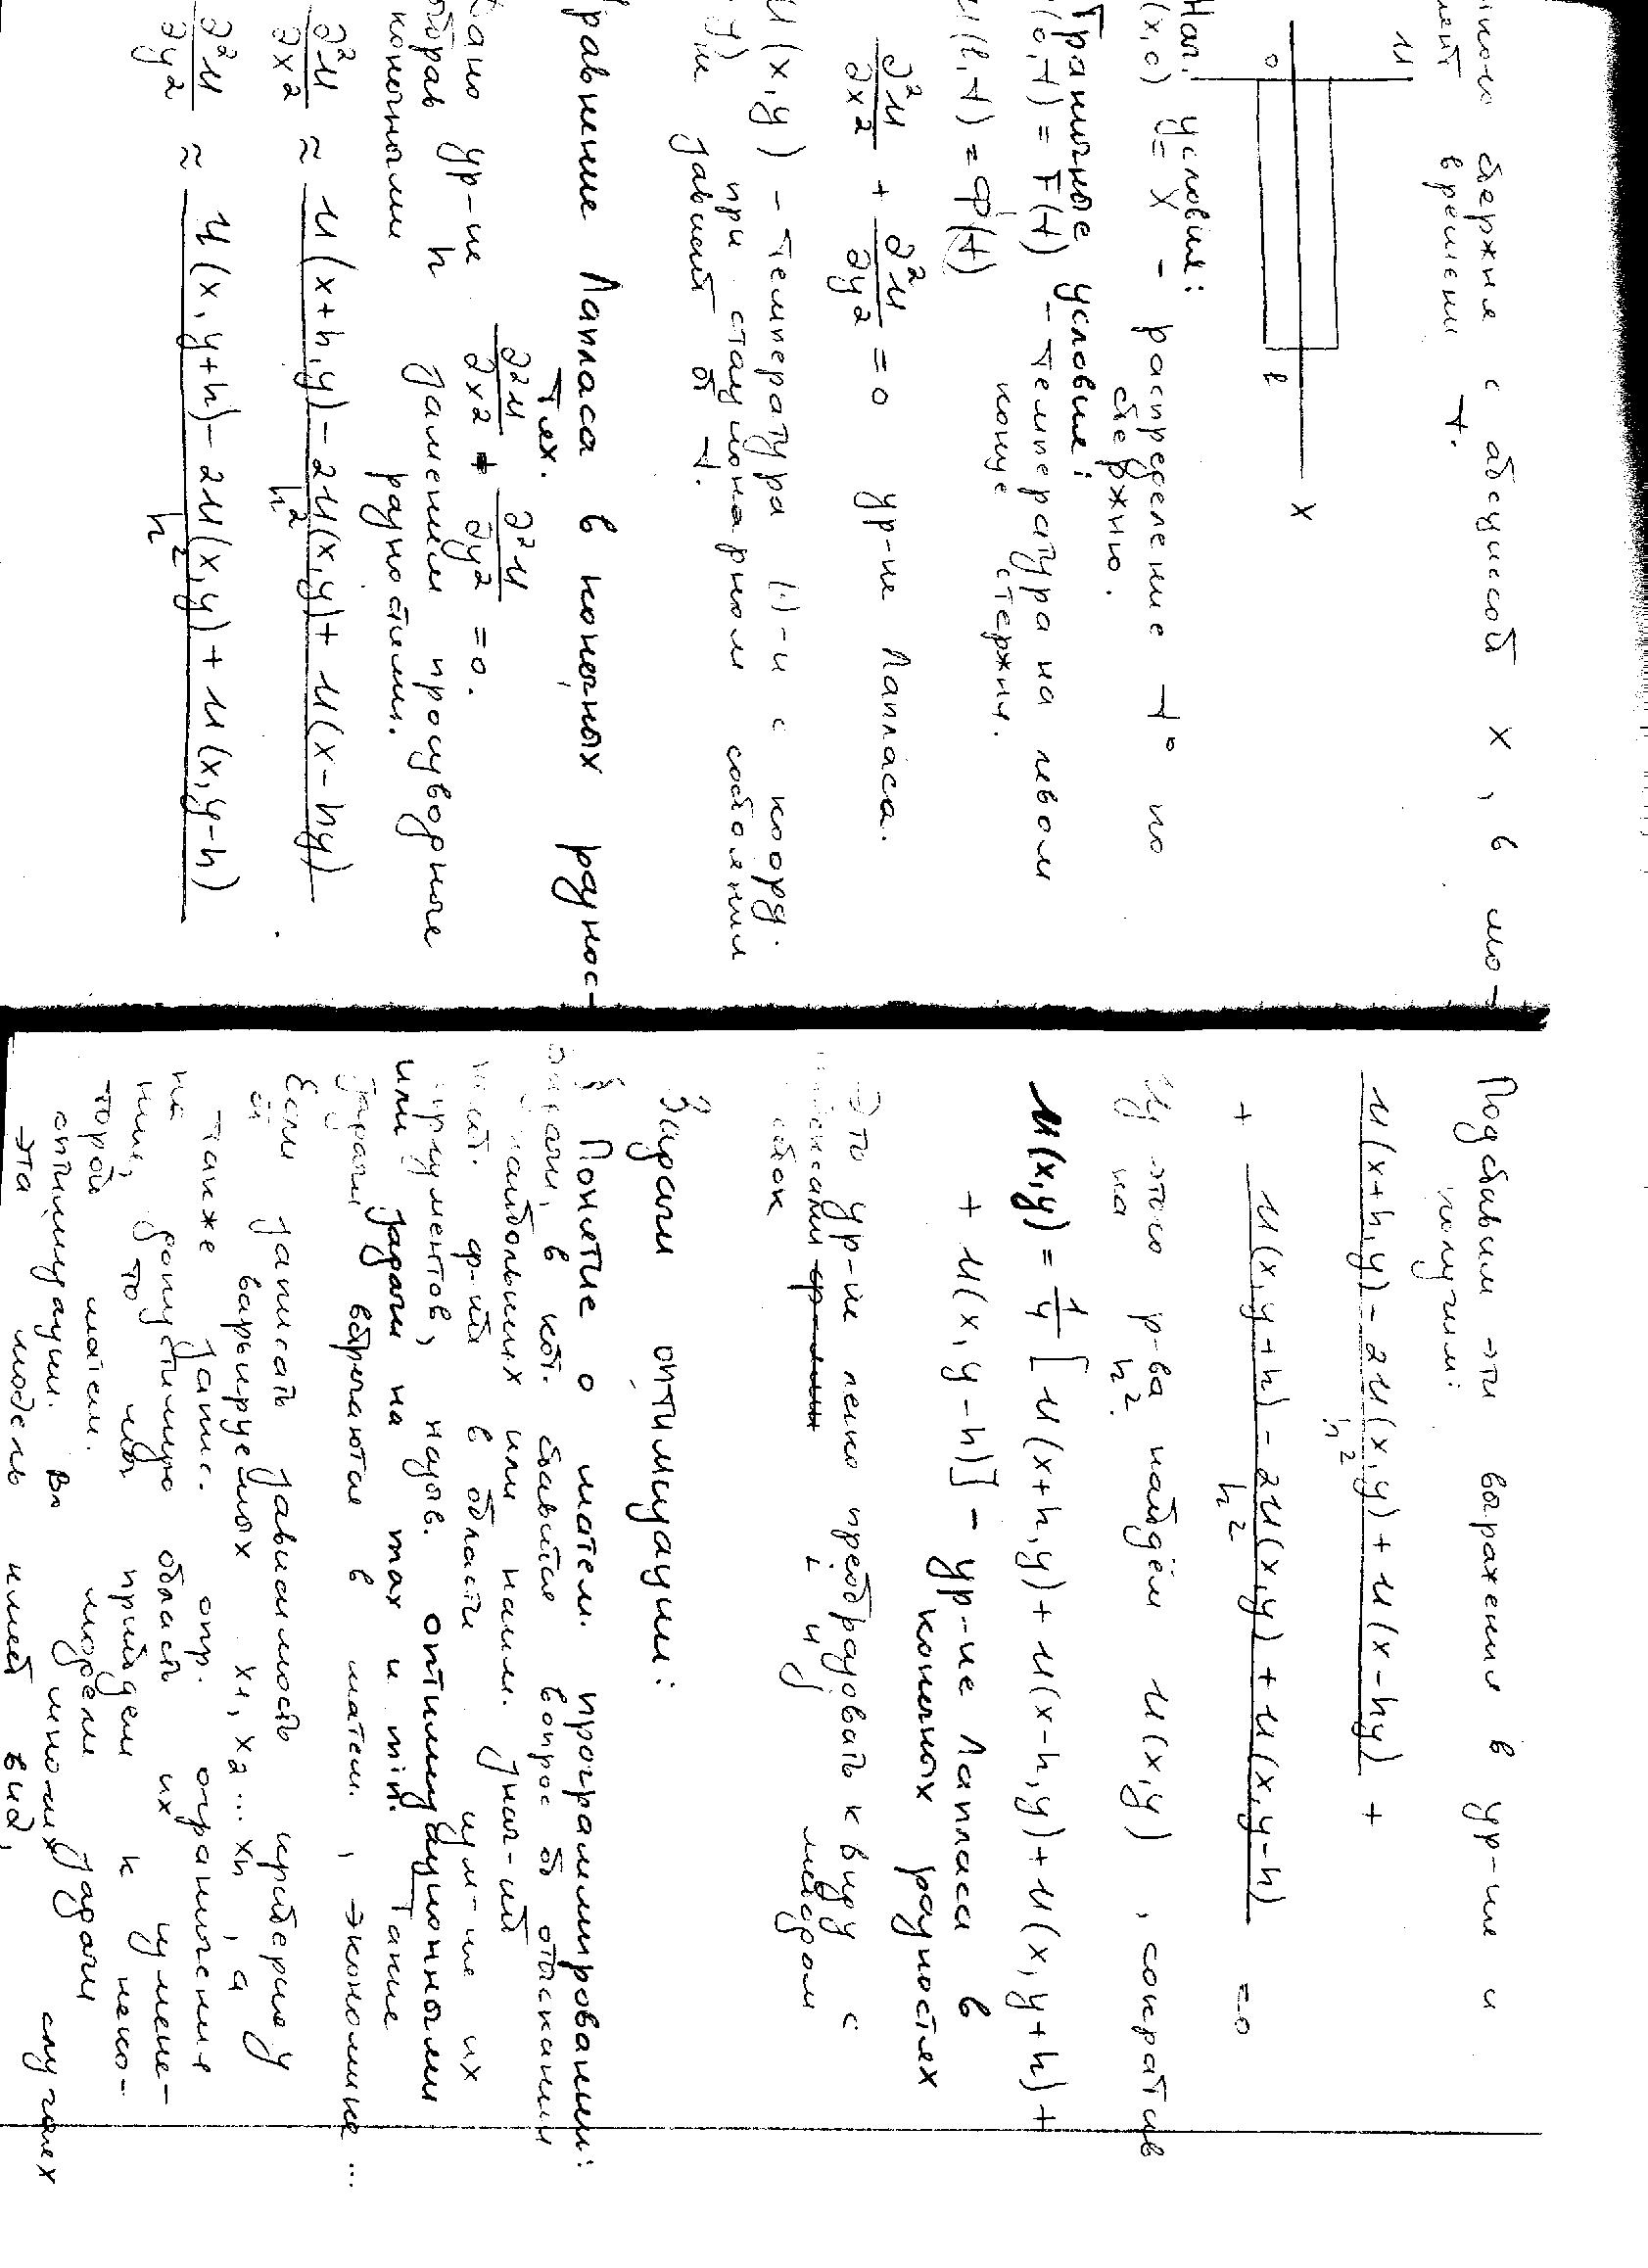 ского стержня с абсциссой х, в мо-
мент времени t.
u
0
l
x
Нач. условие:
(x,0) = X - распределение t° по
стержню.
Граничное условие:
(0,t) = F(t) - температура на левом
конце стержня.
u(l,t) = Ф(t)
∂²u/∂x² + ∂²u/∂y² = 0 ур-ие Лапласа.
u(x,y) - температура (·)-и с коорд.
y) при стационарном состоянии
не зависит от t.
равнение Лапласа в конечных разнос-
тях.
Дано ур-ие ∂²u/∂x² + ∂²u/∂y² = 0.
обрав h заменим производные
конечными разностями.
∂²u/∂x² ≈ u(x+h,y) - 2u(x,y) + u(x-hy) / h²
∂²u/∂y² ≈ u(x,y+h) - 2u(x,y) + u(x,y-h) / h²
Подставим эти выражения в ур-ие и
получим:
u(x+h,y) - 2u(x,y) + u(x-hy) / h² +
+ u(x,y+h) - 2u(x,y) + u(x,y-h) / h² = 0
Из этого р-ва найдём u(x,y), сократив
на h².
u(x,y) = 1/4 [u(x+h,y) + u(x-h,y) + u(x,y+h) +
+ u(x,y-h)] - ур-ие Лапласа в
конечных разностях
Это ур-ие легко преобразовать к виду с
индексами i и j
Задачи оптимизации:
§ Понятие о матем. программировании:
задачи, в кот. ставится вопрос об отыскании
наибольших или наим. знач-ий
ф-ий в области изм-ие их
аргументов, назыв. оптимизационными
или задачи на max и min. Такие
задачи встречаются в матем., экономике...
Если записать зависимость критерия у
от варьируемых x1, x2... xn, а
также запис. опр. ограничения
на допустимую область их измене-
ния, то мы прийдем к неко-
торой матем. модели задачи
оптимизации. Во многих случаях
эта модель имеет вид,